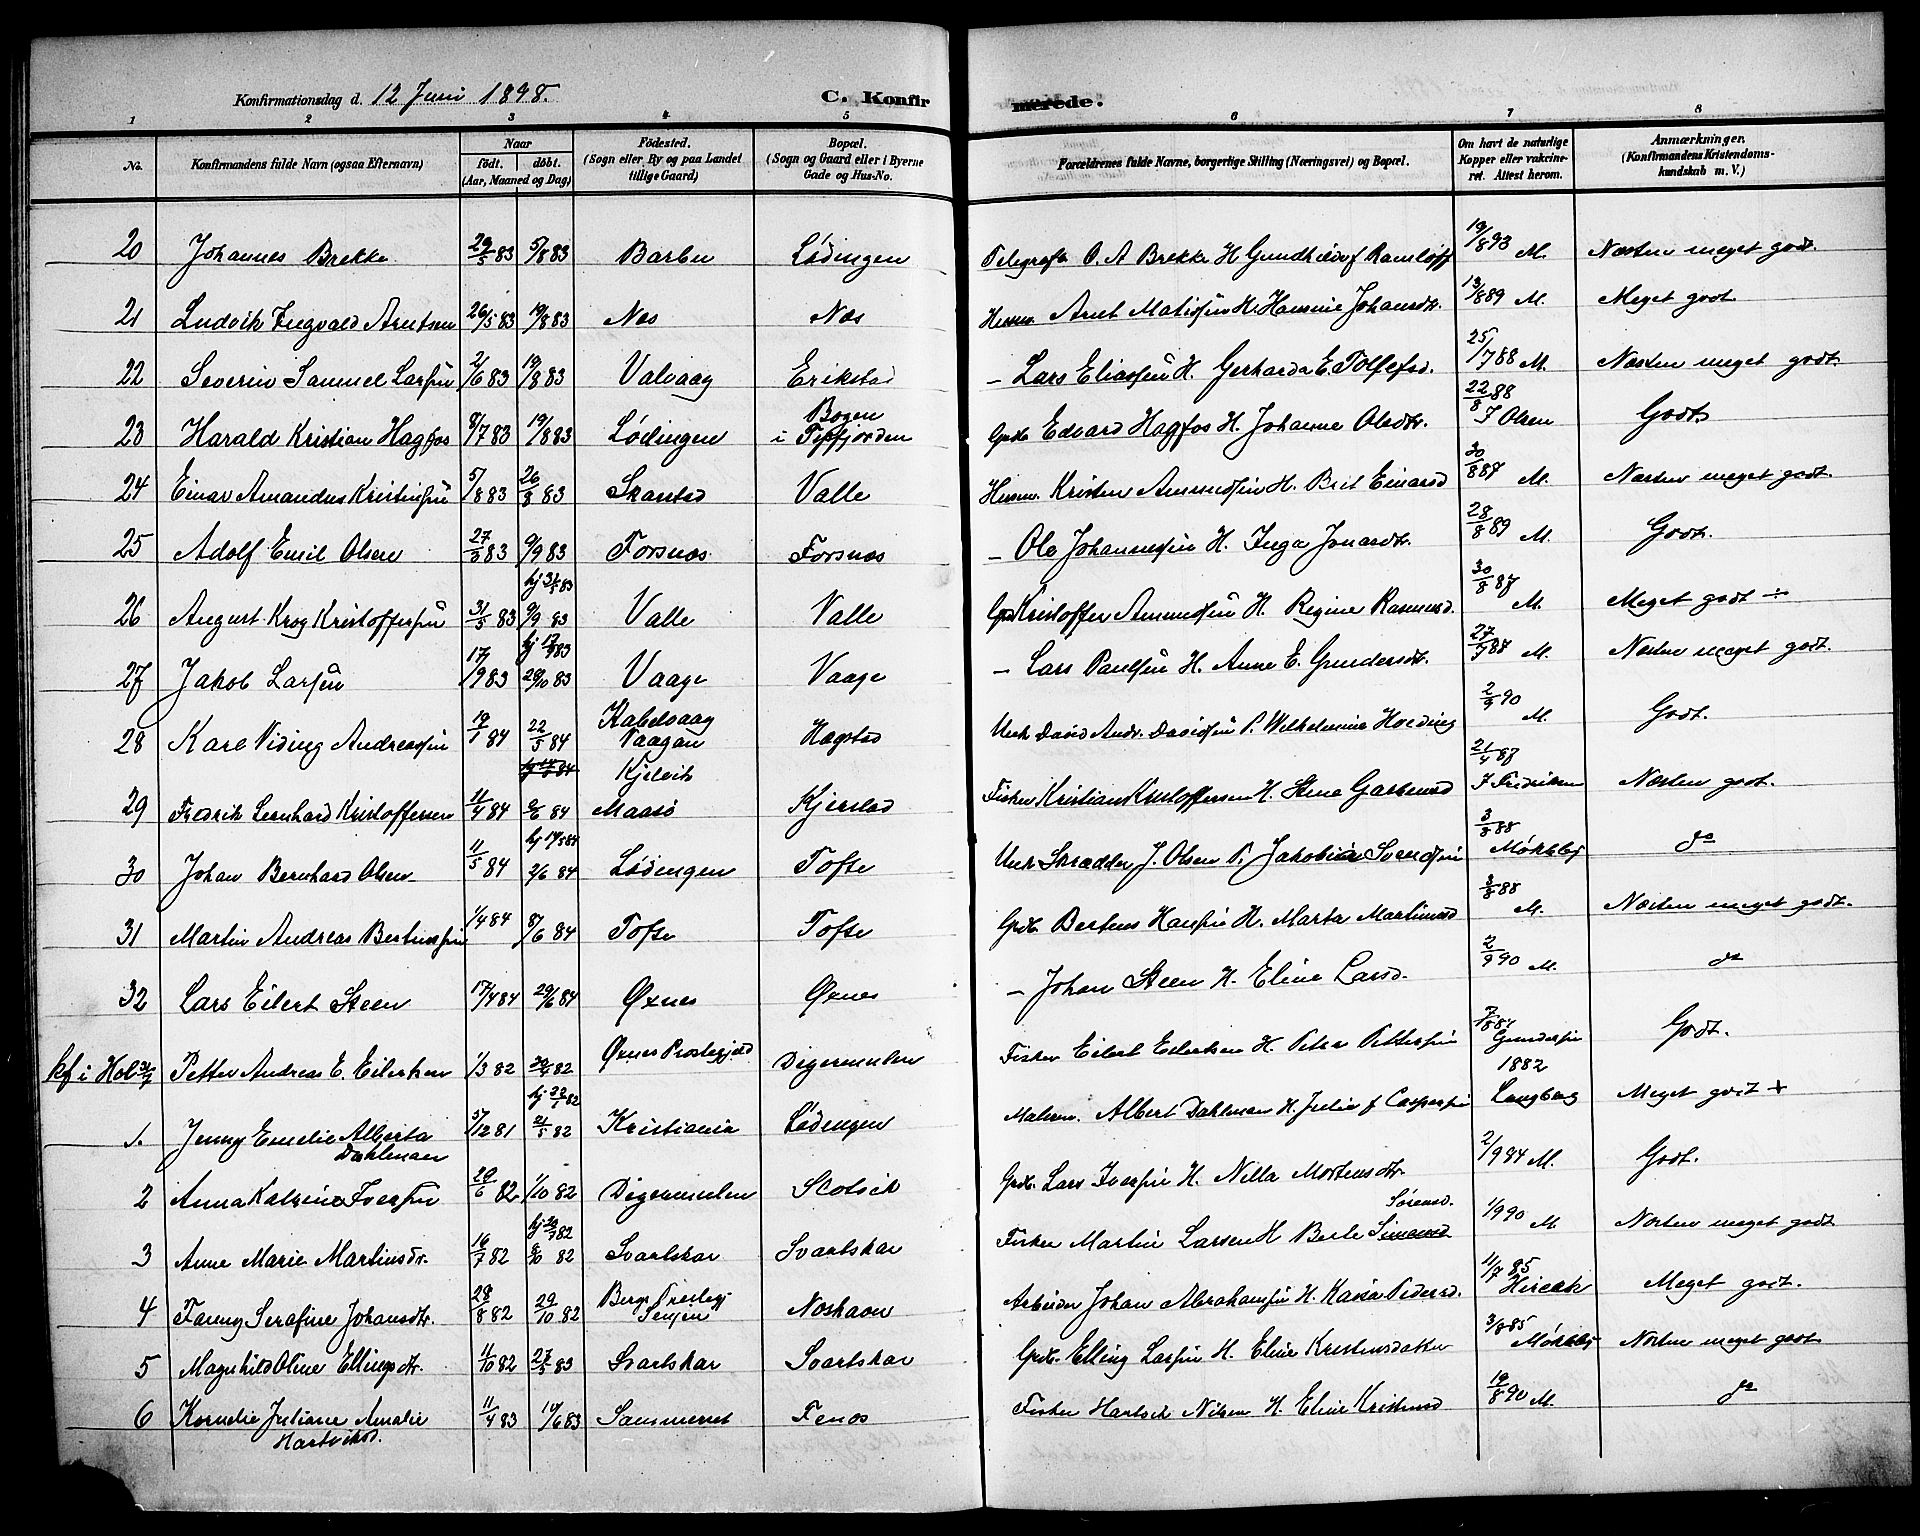 Konfirmationsdag d. 12 Juni 1898. C. Konfirmerede.
1 2 3 4 5 6 7 8
No. Konfirmandens fulde Navn (ogsaa Efternavn) Naar födt. döbt. (Aar, Maaned og Dag) Födested. (Sogn eller By og paa Landet tillige Gaard) Bopæl. (Sogn og Gaard eller i Byerne Gade og Hus-No. Forældrenes fulde Navne, borgerlige Stilling (Næringsvei) og Bopæl. Om havt de naturlige Kopper eller vakcineret. Attest herom. Anmærkninger. (Konfirmandens Kristendomskundskab m. V.)
20 Johannes Brekke 29/5 83 5/8 83 Barbu Lødingen Telegrafb. O. A Brekke H Gundhild f Ramløff 19/8 93 M. Næsten meget godt.
21 Ludvik Ingvald Arntsen 26/5 83 19/8 83 Nes Næs Husm. Arnt Matisen H. Hansine Johansdtr. 13/8 89 M. Meget godt.
22 Severin Samuel Larsen 21/6 83 19/8 83 Valvaag Erikstad – Lars Eliassen H. Gerharda E. Tollefsd. 25/7 88 M. Næsten meget godt.
23 Harald Kristian Hagfos 8/7 83 19/8 83 Lødingen Bogen i Tysfjorden Grdb. Edvard Hagfos H. Johanne Olsdtr. 22/8 88 J Olsen Godt.
24 Einar Amandus Kristensen 5/8 83 26/8 83 Skansted Valle Husm. Kristen Amundsen H. Brit Einarsd 30/8 87 M. Næsten meget godt.
25 Adolf Emil Olsen 27/5 83 9/9 83 Forsnæs Forsnæs – Ole Johannesen H. Inga Jonasdtr. 28/8 89 M. Godt.
26 August Krog Kristoffersen 31/5 83 hj 31/5 83 9/9 83 Valle Valle Grd Kristoffer Amundsen H. Regine Rasmusd. 30/8 87 M. Meget godt ÷
27 Jakob Larsen 17/9 83 hj 17/9 83 28/10 83 Vaage Vaage – Lars Paulsen H. Anne E. Gundersdtr. 27/9 87 M. Næsten meget godt.
28 Kare Viding Andreassen 19/1 84 22/5 84 Kabelvaag Vaagan Hægstad Unk David Andr. Davidsen P. Wilhelmina Hveding 2/9 90 M. Godt.
29 Fredrik Lernhard Kristoffersen 11/4 84 2/6 84 Kjelvik Maasø Kjerstad Fisker Kristian Kristoffersen H. Stine 21/4 87 J Fredriksen Næsten godt.
30 Johan Bernhard Olsen 11/5 84 2/6 84 Lødingen Tofte Unk Skrædder J. Olsen P. Jakobine Svendsen 3/8 88 Møkkelbj do
31 Martin Andreas Bertinsen 1/4 84 8/6 84 Tofte Tofte Grdb. Bertinus Hansen H. Marta Martinusd 3/8 88 M. Næsten meget godt.
32 Lars Eilert Steen 17/4 84 29/6 84 Øxnes Øxnes – Johan Steen H. Eline Larsd. 2/9 90 M. do
kf i Hol Petter Andreas E. Eilertsen 1/3 82 Øxnes Prestegjeld Digermulen Fisker Eilert Eilertsen H. Petra Pettersen Gundersen Godt.
1. Jenny Emelie Alberta Dahlman 5/12 81 21/5 82 Kristiania Lødingen Malerm. Albert Dahlman H. Julie f Caspersen 1882 Langberg Meget godt +
2 Anna Katrine Iversen 29/6 82 1/10 82 Digermulen Slotvik Grdb. Lars Iversen H. Nilla Mortensdtr. 2/9 84 M. Godt.
3 Anne Marie Martinsdtr. 16/7 82 8/10 82 Svartskar Svartskar Fisker Martin Larsen H Berle Simonsd Sørensd. 1/9 90 M Næsten meget godt
4 Fanny Serafine Johansdtr. 28/8 82 29/10 82 Bergs Prestegj Senjen Noshavn Arbeider Johan Abrahamsen H. Kaisa Pedersd. 11/7 85 Meget godt.
5 Magnhild Oline Ellingsdtr. 11/10 82 Svartskar Svartskar Grdb. Elling Larsen H. Eline Kristensdatter 3/8 85 Møkkelbj Næsten meget godt
6 Kornelie Juliane Amalie Hartviksd. 11/4 83 10/6 83 Sammernet Fenes Fisker Hartvik Nilsen H. Eline Kristensd 19/8 90 M. do